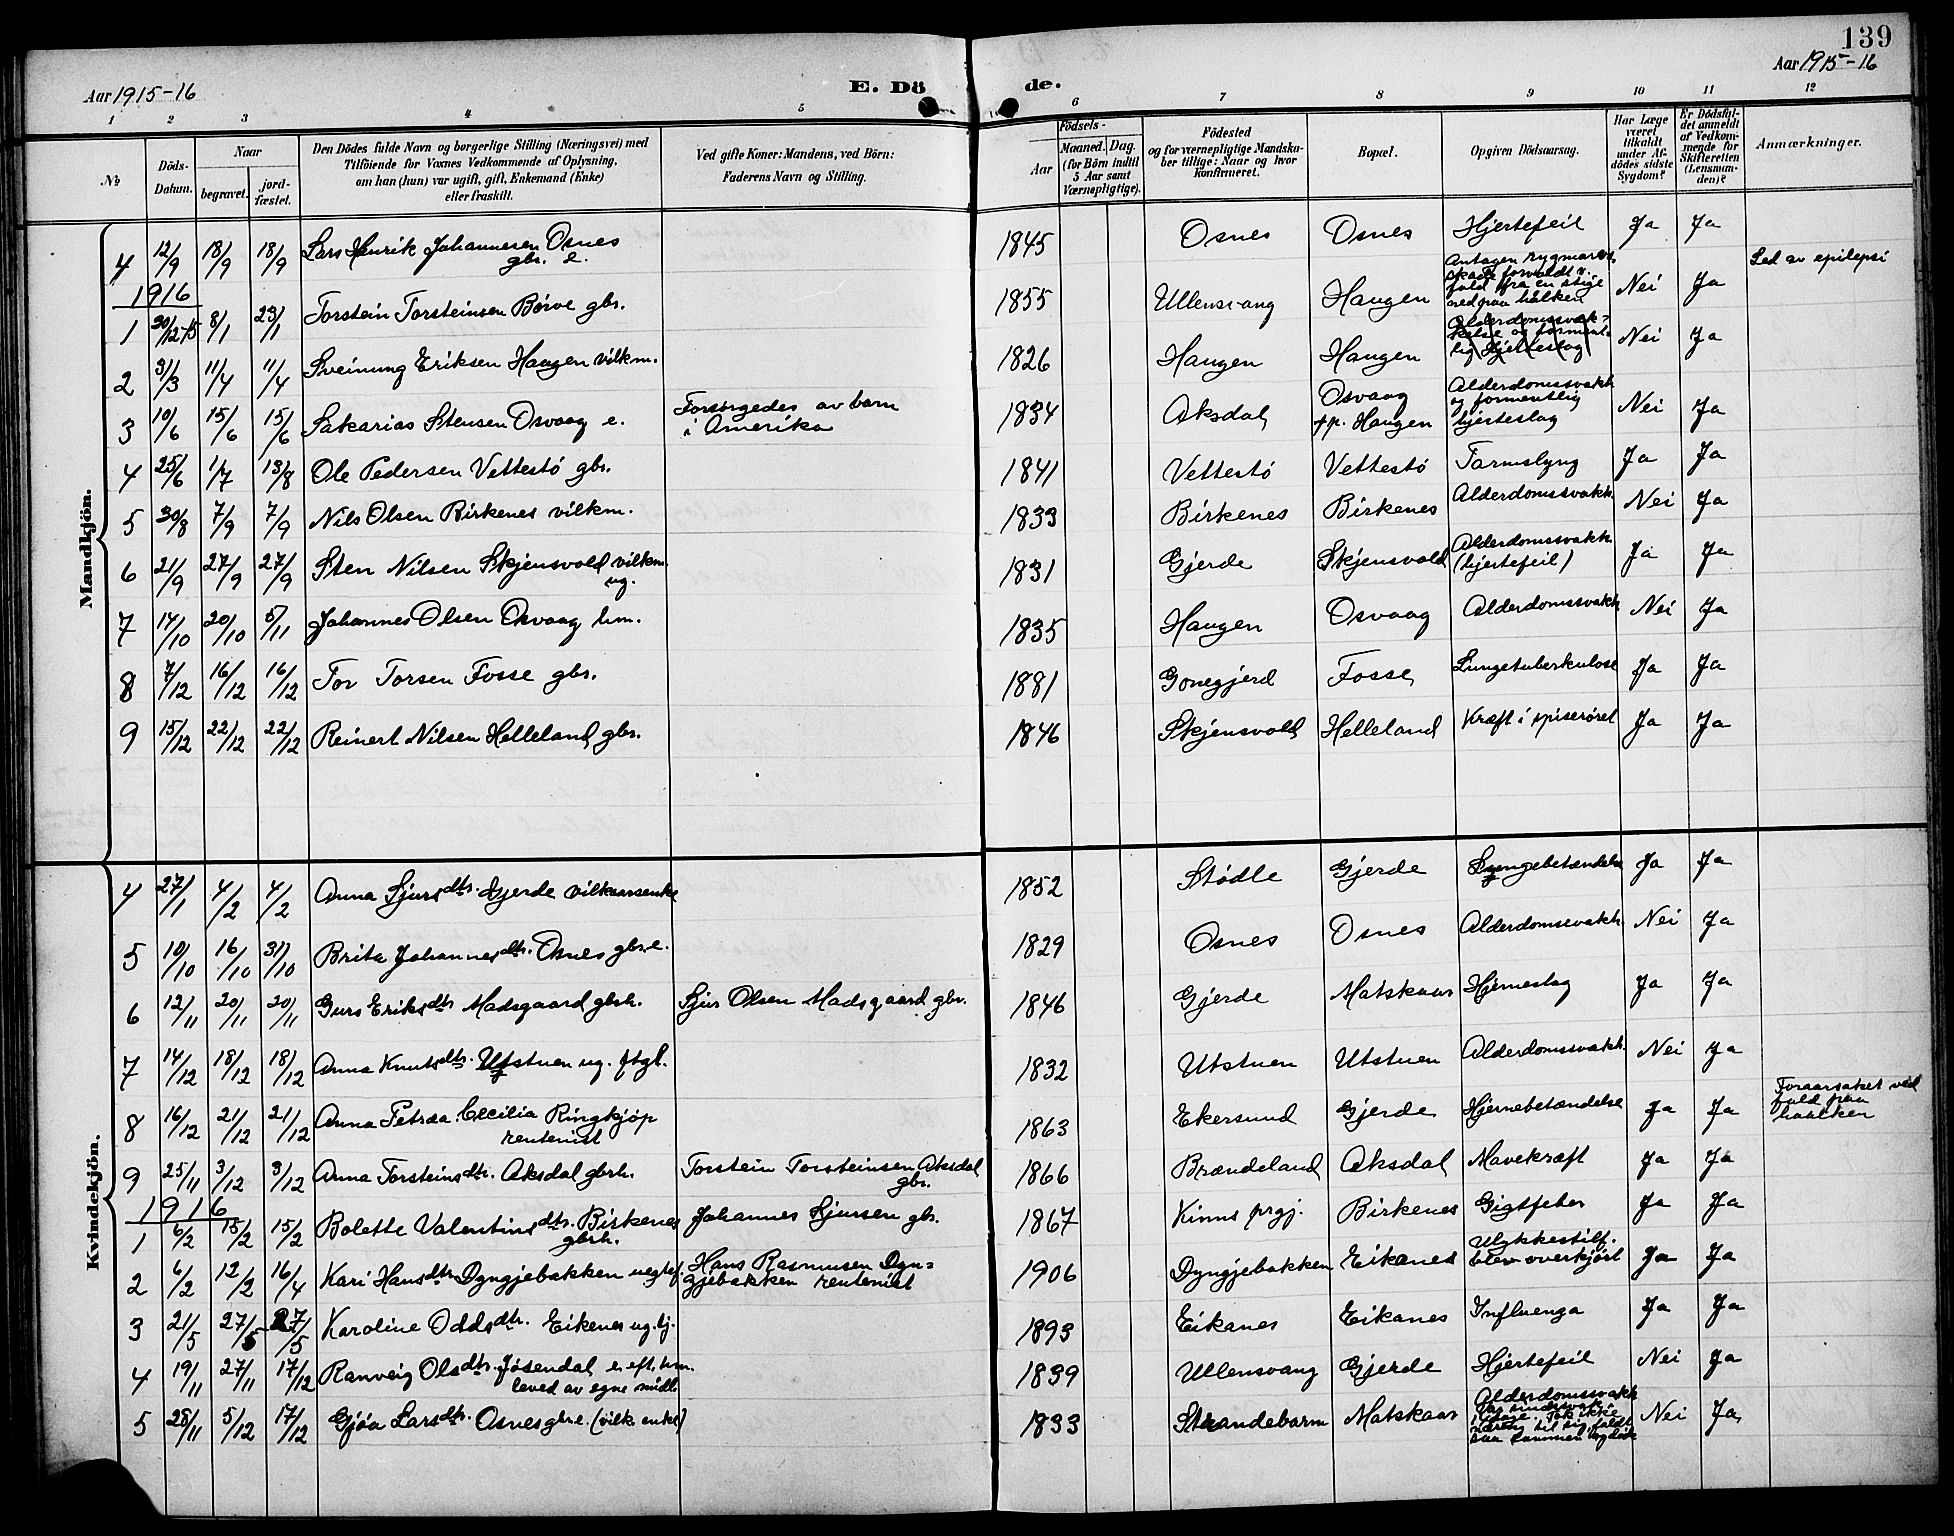 139
Aar 1915-16
E. Döde.
Aar 1915-16
1 2 3 4 5 6 7 8 9 10 11 12
№
Döds-Datum.
Naar
begravet.
jord-fæstet.
Den Dödes fulde Navn og borgerlige Stilling (Næringsvei) med
Tilföiende for Voxnes Vedkommende af Oplysning,
om han (hun) var ugift, gift, Enkemand (Enke)
eller fraskilt.
Ved gifte Koner: Mandens, ved Börn:
Faderens Navn og Stilling.
Födsels-
Aar
Maaned. Dag.
(for Börn indtil
5 Aar samt
Værnepligtige).
Födested
og for værnepligtige Mandska-
ber tillige: Naar og hvor
Konfirmeret.
Bopæl.
Opgiven Dödsaarsag.
Har Læge
været
tilkaldt
under Af-
dödes sidste
Sygdom?
Er Dödsfal-
det anmeldt
af Vedkom-
mende for
Skifteretten
(Lensman-
den)?
Anmærkninger.
Mandkjön.
4 12/9 18/9 18/9 Lars Henrik Johannesen Osnes gbr. e. 1845 Osnes Osnes Hjertefeil Ja Ja
1916
1 30/12-15 8/1 23/1 Torstein Torsteinsen Börve gbr. 1855 Ullensvang Haugen Antagen rygmarvs skade forvoldt v. fald fra en stige ned paa hålken Nei Ja Led av epilepsi
2 31/3 11/4 11/4 Sveinung Eriksen Haugen vilkm. 1826 Haugen Haugen Alderdomssvækkelse og forment-lig hjerteslag Nei Ja
3 10/6 15/6 15/6 Sakarias Stensen Osvaag e. Forsörgedes av barn i Amerika 1834 Aksdal Osvaag pp. Haugen Alderdomssvakh og formentlig hjerteslag Nei Ja
4 25/6 1/7 13/8 Ole Pedersen Vettestö gbr. 1841 Vettestö Vettestö Tarmslyng Ja Ja
5 30/8 7/9 7/9 Nils Olsen Birkenes vilkm. 1833 Birkenes Birkenes Alderdomssvakh. Nei Ja
6 21/9 27/9 27/9 Sten Nilsen Skjensvold vilkm. ug. 1831 Gjerde Skjensvold Alderdomssvakh (hjertefeil) Ja Ja
7 14/10 20/10 5/11 Johannes Olsen Osvaag hm. 1835 Haugen Osvaag Alderdomssvakh Nei Ja
8 7/12 16/12 16/12 Tor Torsen Fosse gbr. 1881 Gonegjerd Fosse Lungetuberkulose Ja Ja
9 15/12 22/12 22/12 Reinert Nilsen Helleland gbr. 1846 Skjensvold Helleland Kræft i spiseröret Ja Ja
Kvindekjön.
4 27/1 4/2 4/2 Anna Sjursdtr. Gjerde vilkaarsenke 1852 Stödle Gjerde Lungebetændelse Ja Ja
5 10/10 16/10 31/10 Brita Johannesdtr. Osnes gbr.e. 1829 Osnes Osnes Alderdomssvakh Nei Ja
6 12/11 20/11 20/11 Guro Eriksdtr Madsgaard gbrh. Sjur Olsen Madsgaard gbr. 1846 Gjerde Matskaar Hjerneslag Ja Ja
7 14/12 18/12 18/12 Anna Knutsdtr. Utstuen ug. ftgl. 1832 Utstuen Utstuen Alderdomssvakh. Nei Ja
8 16/12 21/12 21/12 Anna Petræa Cecilia Ringkjöp rentenist 1863 Ekersund Gjerde Hjernebetændelse Ja Ja Foraarsaket ved fald paa haalken
9 25/11 3/12 3/12 Anna Torsteinsdtr. Aksdal gbrh. Torstein Torsteinsen Aksdal gbr. 1866 Brændeland Aksdal Mavekræft Ja Ja
1916
1 6/2 15/2 15/2 Bolette Valentinsdtr. Birkenes gbrh. Johannes Sjursen gbr. 1867 Kinns prgj. Birkenes Gigtfeber Ja Ja
2 6/2 12/2 16/4 Kari Hansdtr Dyngjebakken Hans Rasmusen Dyn=gjebakken rentenist 1906 Dyngjebakken Eikanes Ulykkestilf. blev overkjört Ja Ja
3 21/5 27/5 27/5 Karoline Oddsdtr. Eikenes ug. tj. 1893 Eikanes Eikanes Influenza Ja Ja
4 19/11 27/11 17/12 Ranveig Olsdtr. Jösendal e. eft. hm. leved av egne midl. 1839 Ullensvang Gjerde Hjertefeil Nei Ja
5 28/11 5/12 17/12 Gjöa Larsdtr. Osnes gbr.e. (vilk. enke) 1833 Strandebarm Matskaar Alderdomssvakh Nei Ja